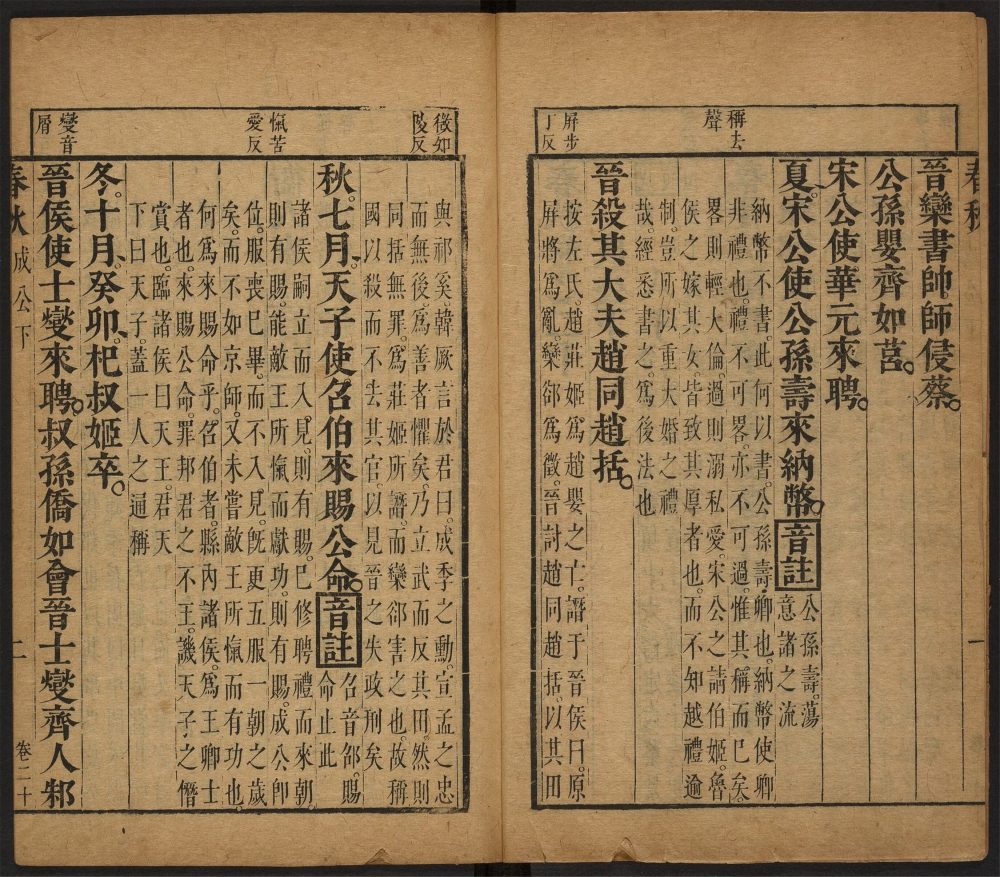 稱去
聲
屏步
丁反
春秋
一
晉欒書帥師侵蔡。
公孫嬰齊如莒。
宋公使華元來聘。
夏。宋公使公孫壽來納幣。音註
公孫壽。蕩
意諸之流
納幣不書。此何以書。公孫壽。卿也。納幣使卿
非禮也。禮不可畧。亦不可過。惟其稱而已矣。
畧則輕大倫。過則溺私愛。宋公之請伯姬。魯
侯之嫁其女。皆致其厚者也。而不知越禮逾
制。豈所以重大婚之禮
哉。經悉書之。爲後法也
晉殺其大夫趙同趙括。
按左氏。趙莊姬爲趙嬰之亡。譖于晉侯曰。原
屏將爲亂。欒郤爲徵。晉討趙同趙括。以其田
徵如
陵反
愾苦
愛反
燮音
屑
與祁奚。韓厥言於君曰。成季之勳。宣孟之忠
而無後。爲善者懼矣。乃立武而反其田。然則
同括無罪。爲莊姬所譖。而欒郤害之也。故稱
國以殺而不去其官。以見晉之失政刑矣
秋。七月。天子使召伯來賜公命。音註
召音邵。賜
命止此
諸侯嗣立而入見。則有賜。已修聘禮而來朝。
則有賜。能敵王所愾而獻功。則有賜。成公卽
位。服喪已畢。而不入見。旣更五服一朝之歲
矣。而不如京師。又未嘗敵王所愾而有功也。
何爲來賜命乎。召伯者。縣內諸侯。爲王卿士
者也。來賜公命。罪邦君之不王。譏天子之僭
賞也。臨諸侯曰天王。君天
下曰天子。蓋一人之通稱
冬。十月。癸卯。杞叔姬卒。
晉侯使士燮來聘。叔孫僑如會晉士燮齊人邾
春秋 成公下 二 卷二十